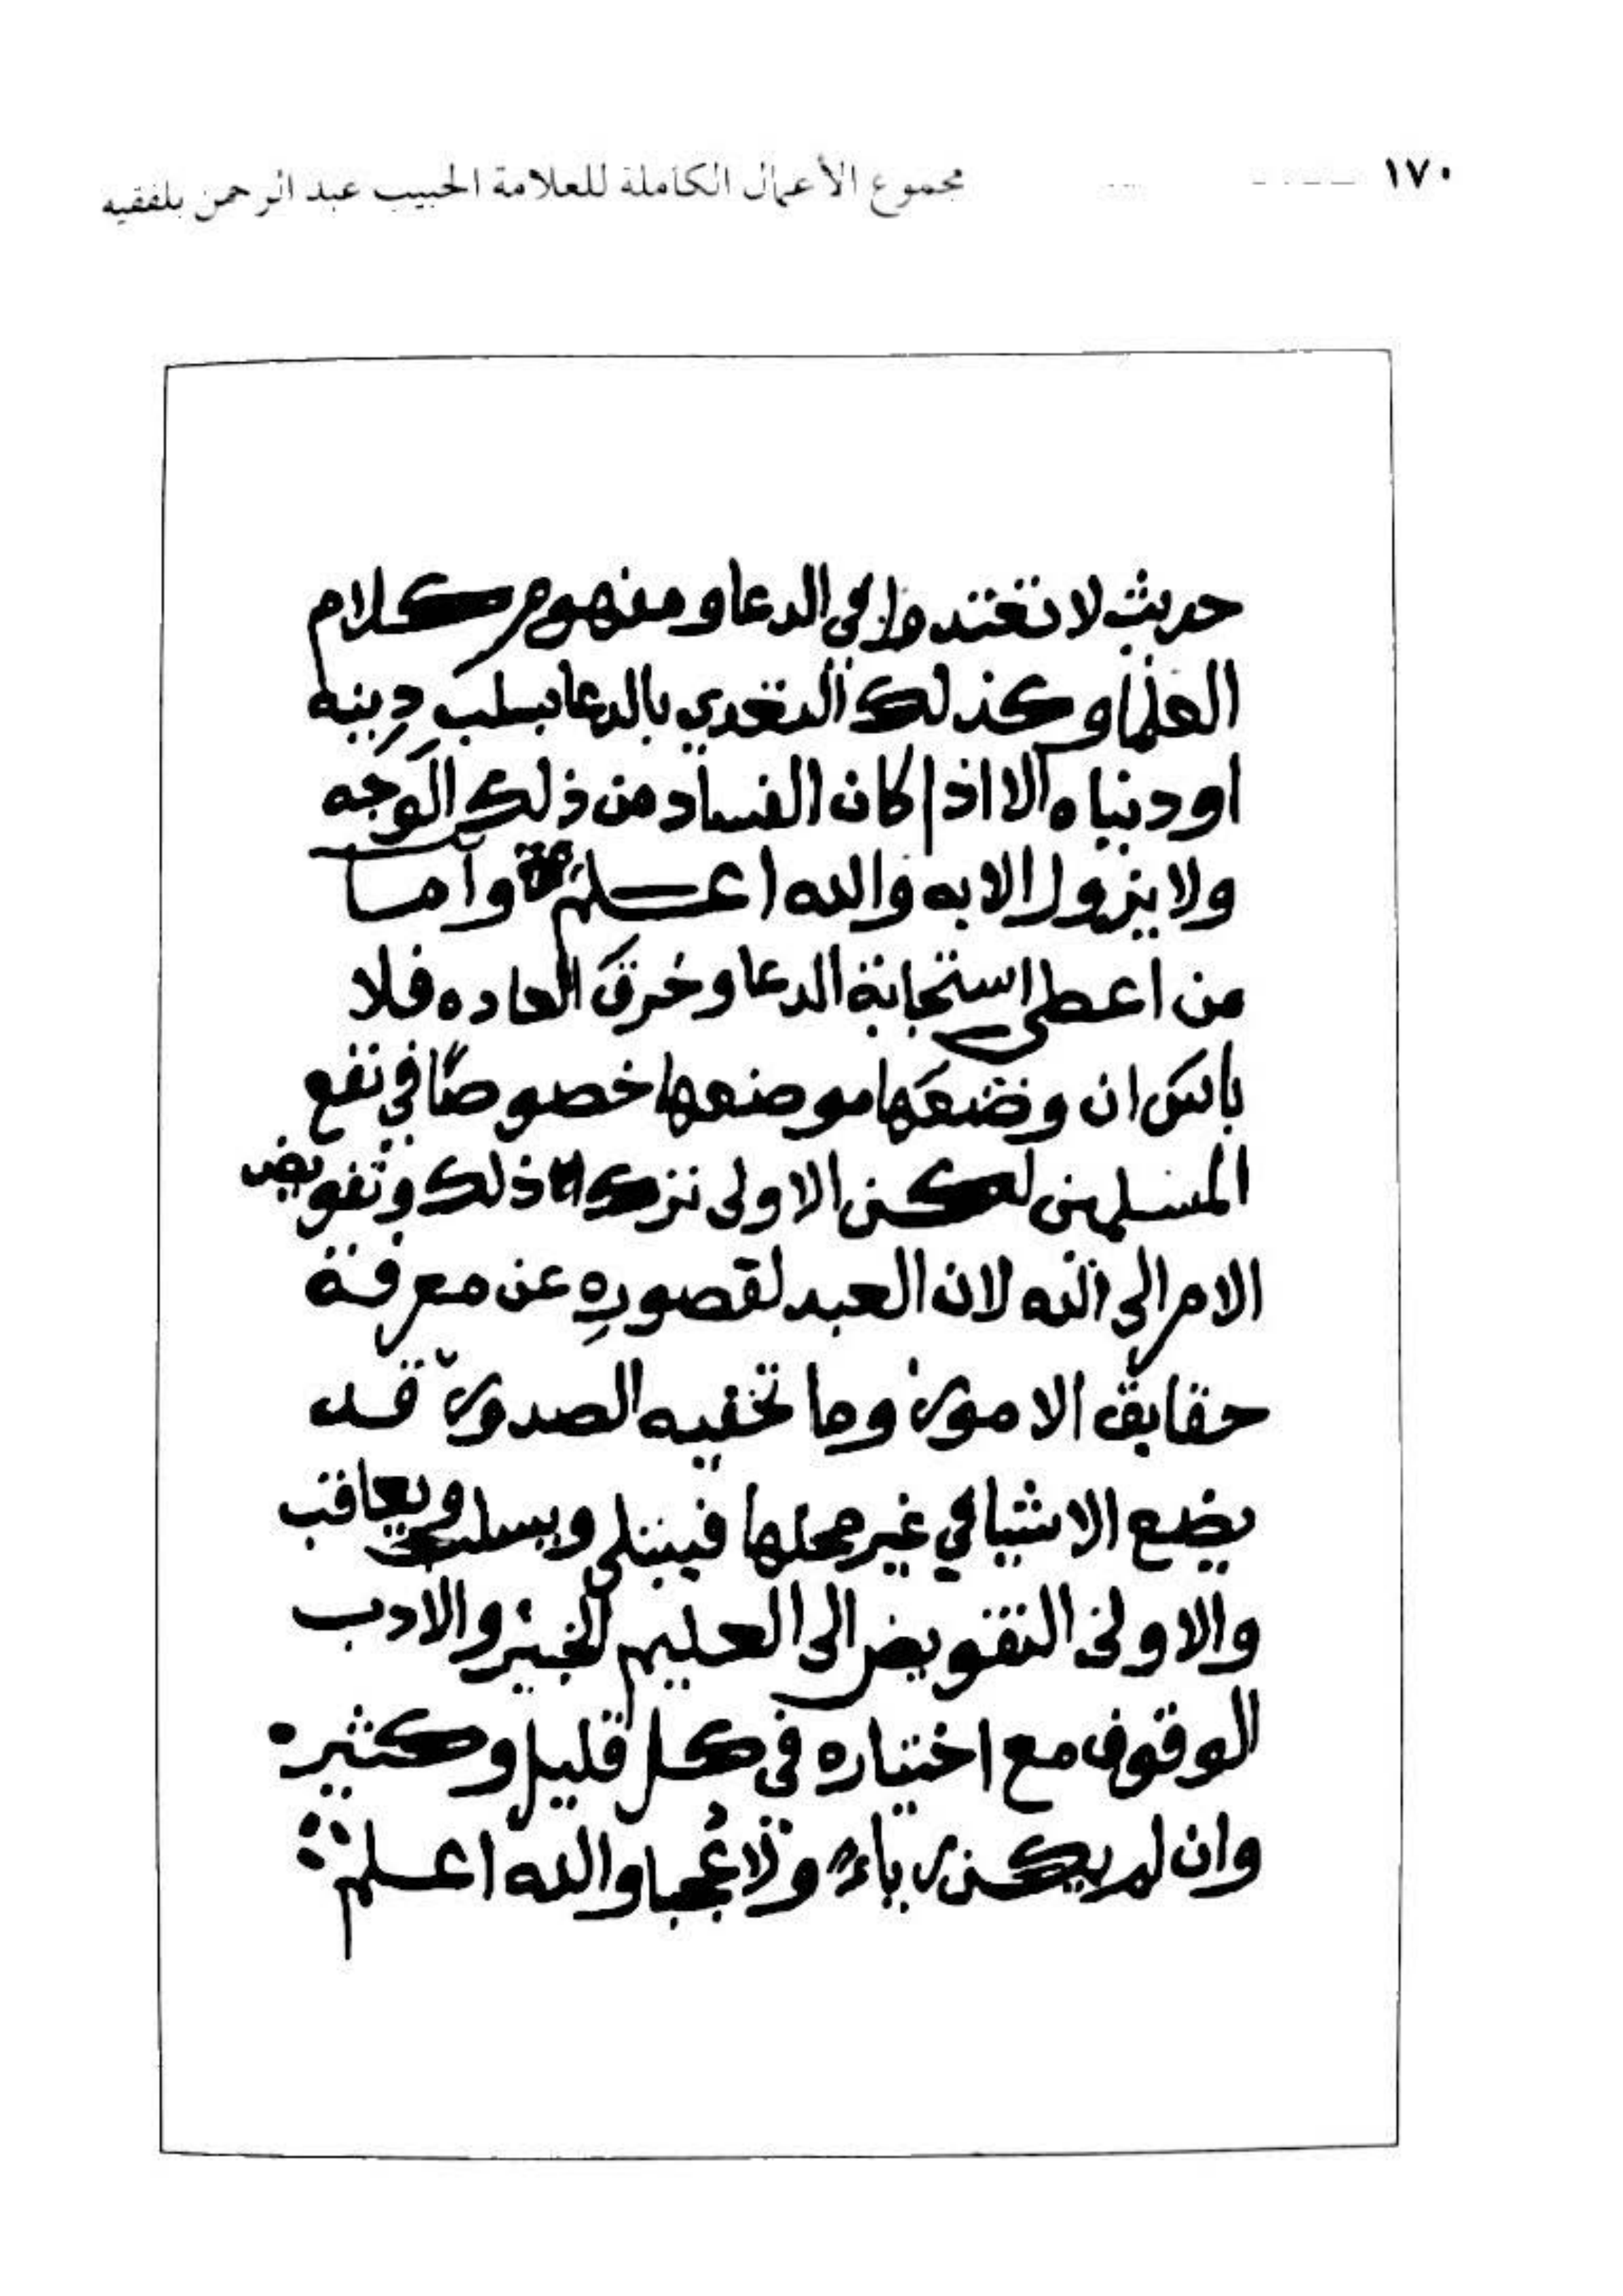 ١٧٠ مجموع الأعمال الكاملة للعلامة الحبيب عبد الرحمن بلفقيه
حديث لا تعتدوا في الدعا ومفهوم كلام
العلما وكذلك التعدي بالدعا بسلب دينه
او دنياه الا اذا كان الفساد من ذلك الوجه
ولا يزول الا به والله اعلم واما
من اعطي استجابة الدعا وخرق العاده فلا
باس ان وضعها موضعها خصوصًا في نفع
المسلمين لكن الاولى ترك ذلك وتفويض
الامر الى الله لان العبد لقصوره عن معرفة
حقايق الامور وما تخفيه الصدور قد
يضع الاشيا في غير محلها فيبتلى ويسلب ويعاقب
والاولى التفويض الى العليم الخبير والادب
الوقوف مع اختياره في كل قليل وكثير
وان لم يكن رياء ولا عُجبا والله اعلم